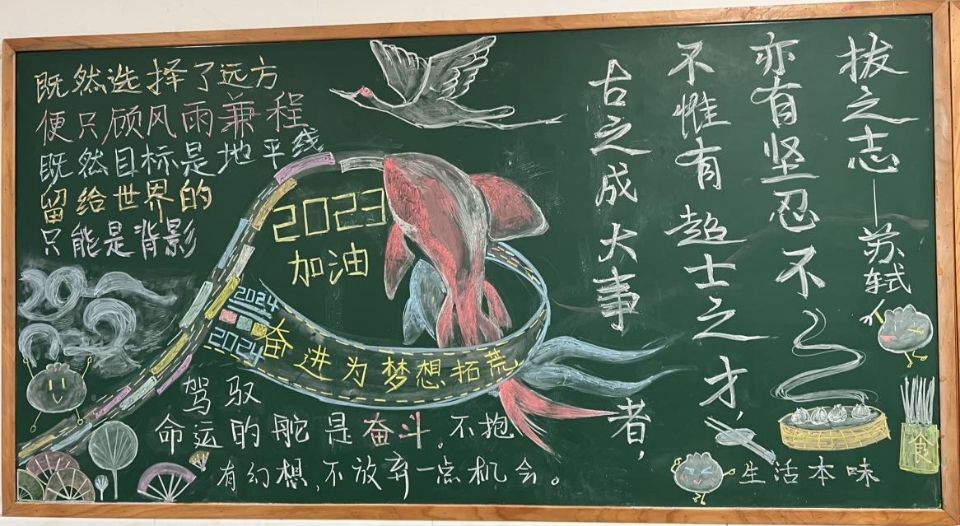 既然选择了远方
便只顾风雨兼程
既然目标是地平线
留给世界的
只能是背影
2023
加油
2024
2024
奋进为梦想拓荒
驾驭
命运的舵是奋斗,不抱
有幻想,不放弃一点机会。
古之成大事者,
不惟有超士之才,
亦有坚忍不
拔之志—苏轼
食
生活本味